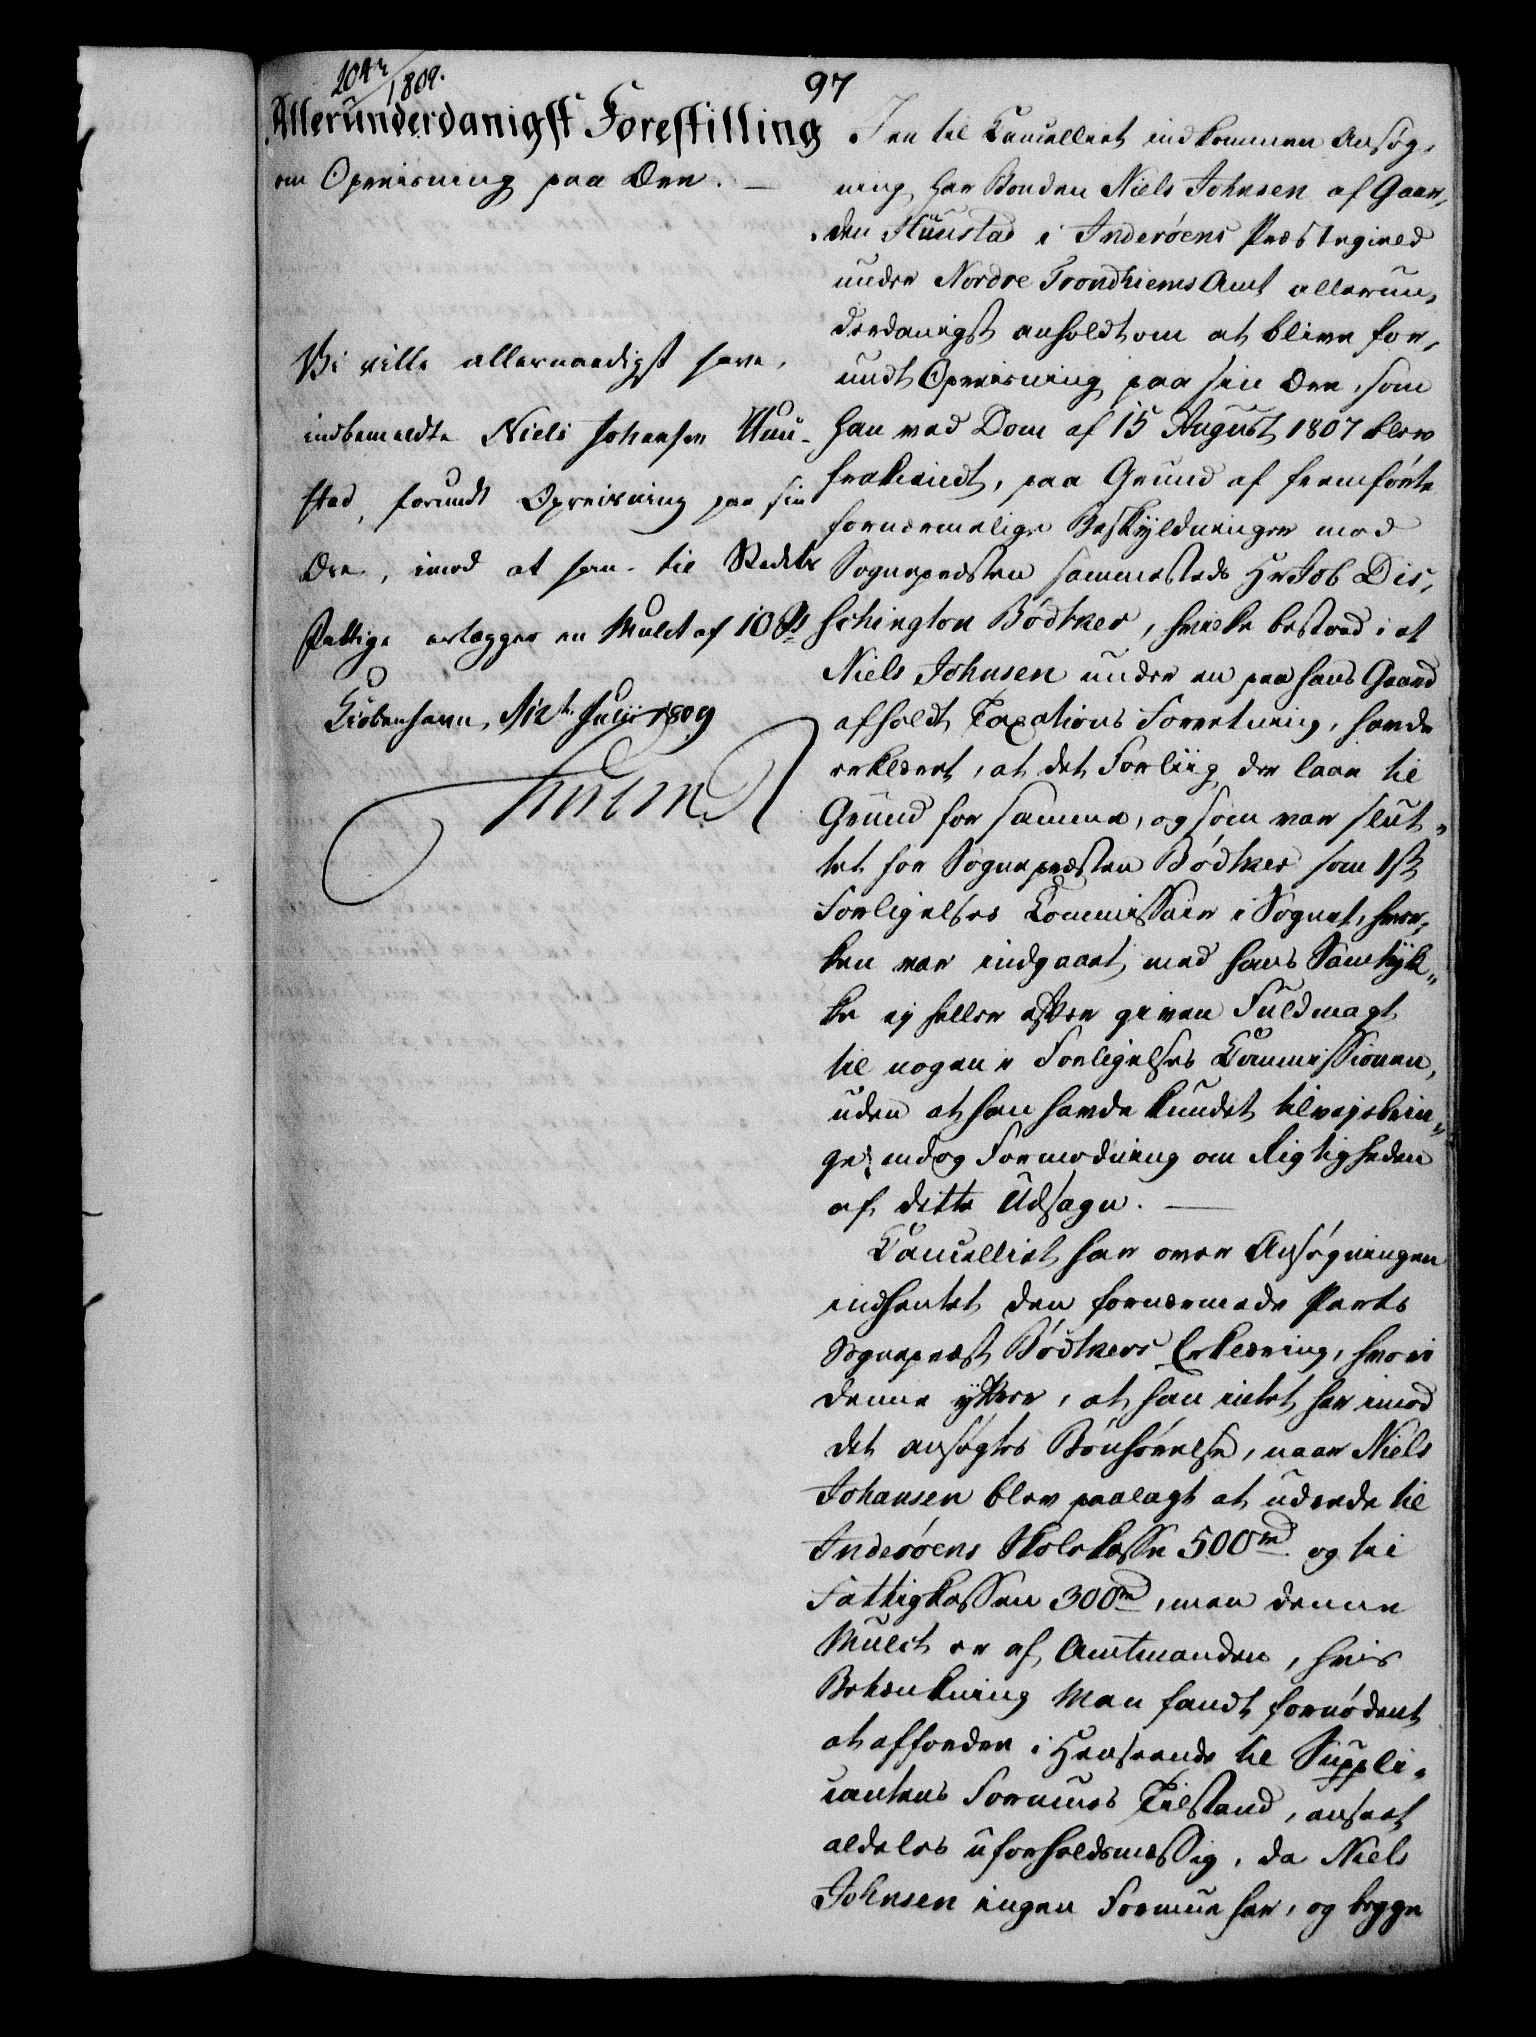 2042/1809.
97
Allerunderdanigst Forestilling
om Opreisning paa Ære. —
Vi ville allernaadigst have,
indbemeldte Niels Johansen Huu-
stad, forundt Opreisning paa sin
Ære, imod at han til Stedets
Fattige erlægger en Mulct af 10 Rd
Kiøbenhavn, d 12te Julii 1809
I en til Cancelliet indkommen Ansøg-
ning har Bonden Niels Johnsen af Gaar-
den Huustad i Inderøens Præstegield
under Nordre Trondhiems Amt allerun-
derdanigst anholdt om at blive for-
undt Opreisning paa sin Ære, som
han ved Dom af 15 August 1807 blev
frakiendt, paa Grund af fremførte
fornærmelige Beskyldninger mod
Sognepræsten sammesteds Hr Job Dis-
schington Bødtker, hvilke bestoed i at
Niels Johnsen under en paa hans Gaard
afholdt Taxations Forretning, havde
erklæret, at det Forliig der laae til
Grund for samme, og som var slut-
tet for Sognepræsten Bødtker som 1ste
Forligelses Commissair i Sognet, hver-
ken var indgaaet med hans Samtyk-
ke ej heller efter given Fuldmagt
til nogen i Forligelses Commissionen,
uden at han havde kundet tilvejebrin-
ge endog Formodning om Rigtigheden
af dette Udsagn. —
Cancelliet har over Ansøgningen
indhentet den fornærmede Parts
Sognepræst Bødtkers Erklæring, hvori
denne yttrer, at han intet har imod
det ansøgtes Bønhørelse, naar Niels
Johansen blev paalagt at udrede til
Inderøens Skolekasse 500 rd og til
Fattigkassen 300 rd, men denne
Mulct er af Amtmanden, hvis
Betænkning Man fandt fornødent
at affordre i Henseende til Suppli-
cantens Formues Tilstand, anseet
aldeles uforholdsmæssig, da Niels
Johnsen ingen Formue har, og begge